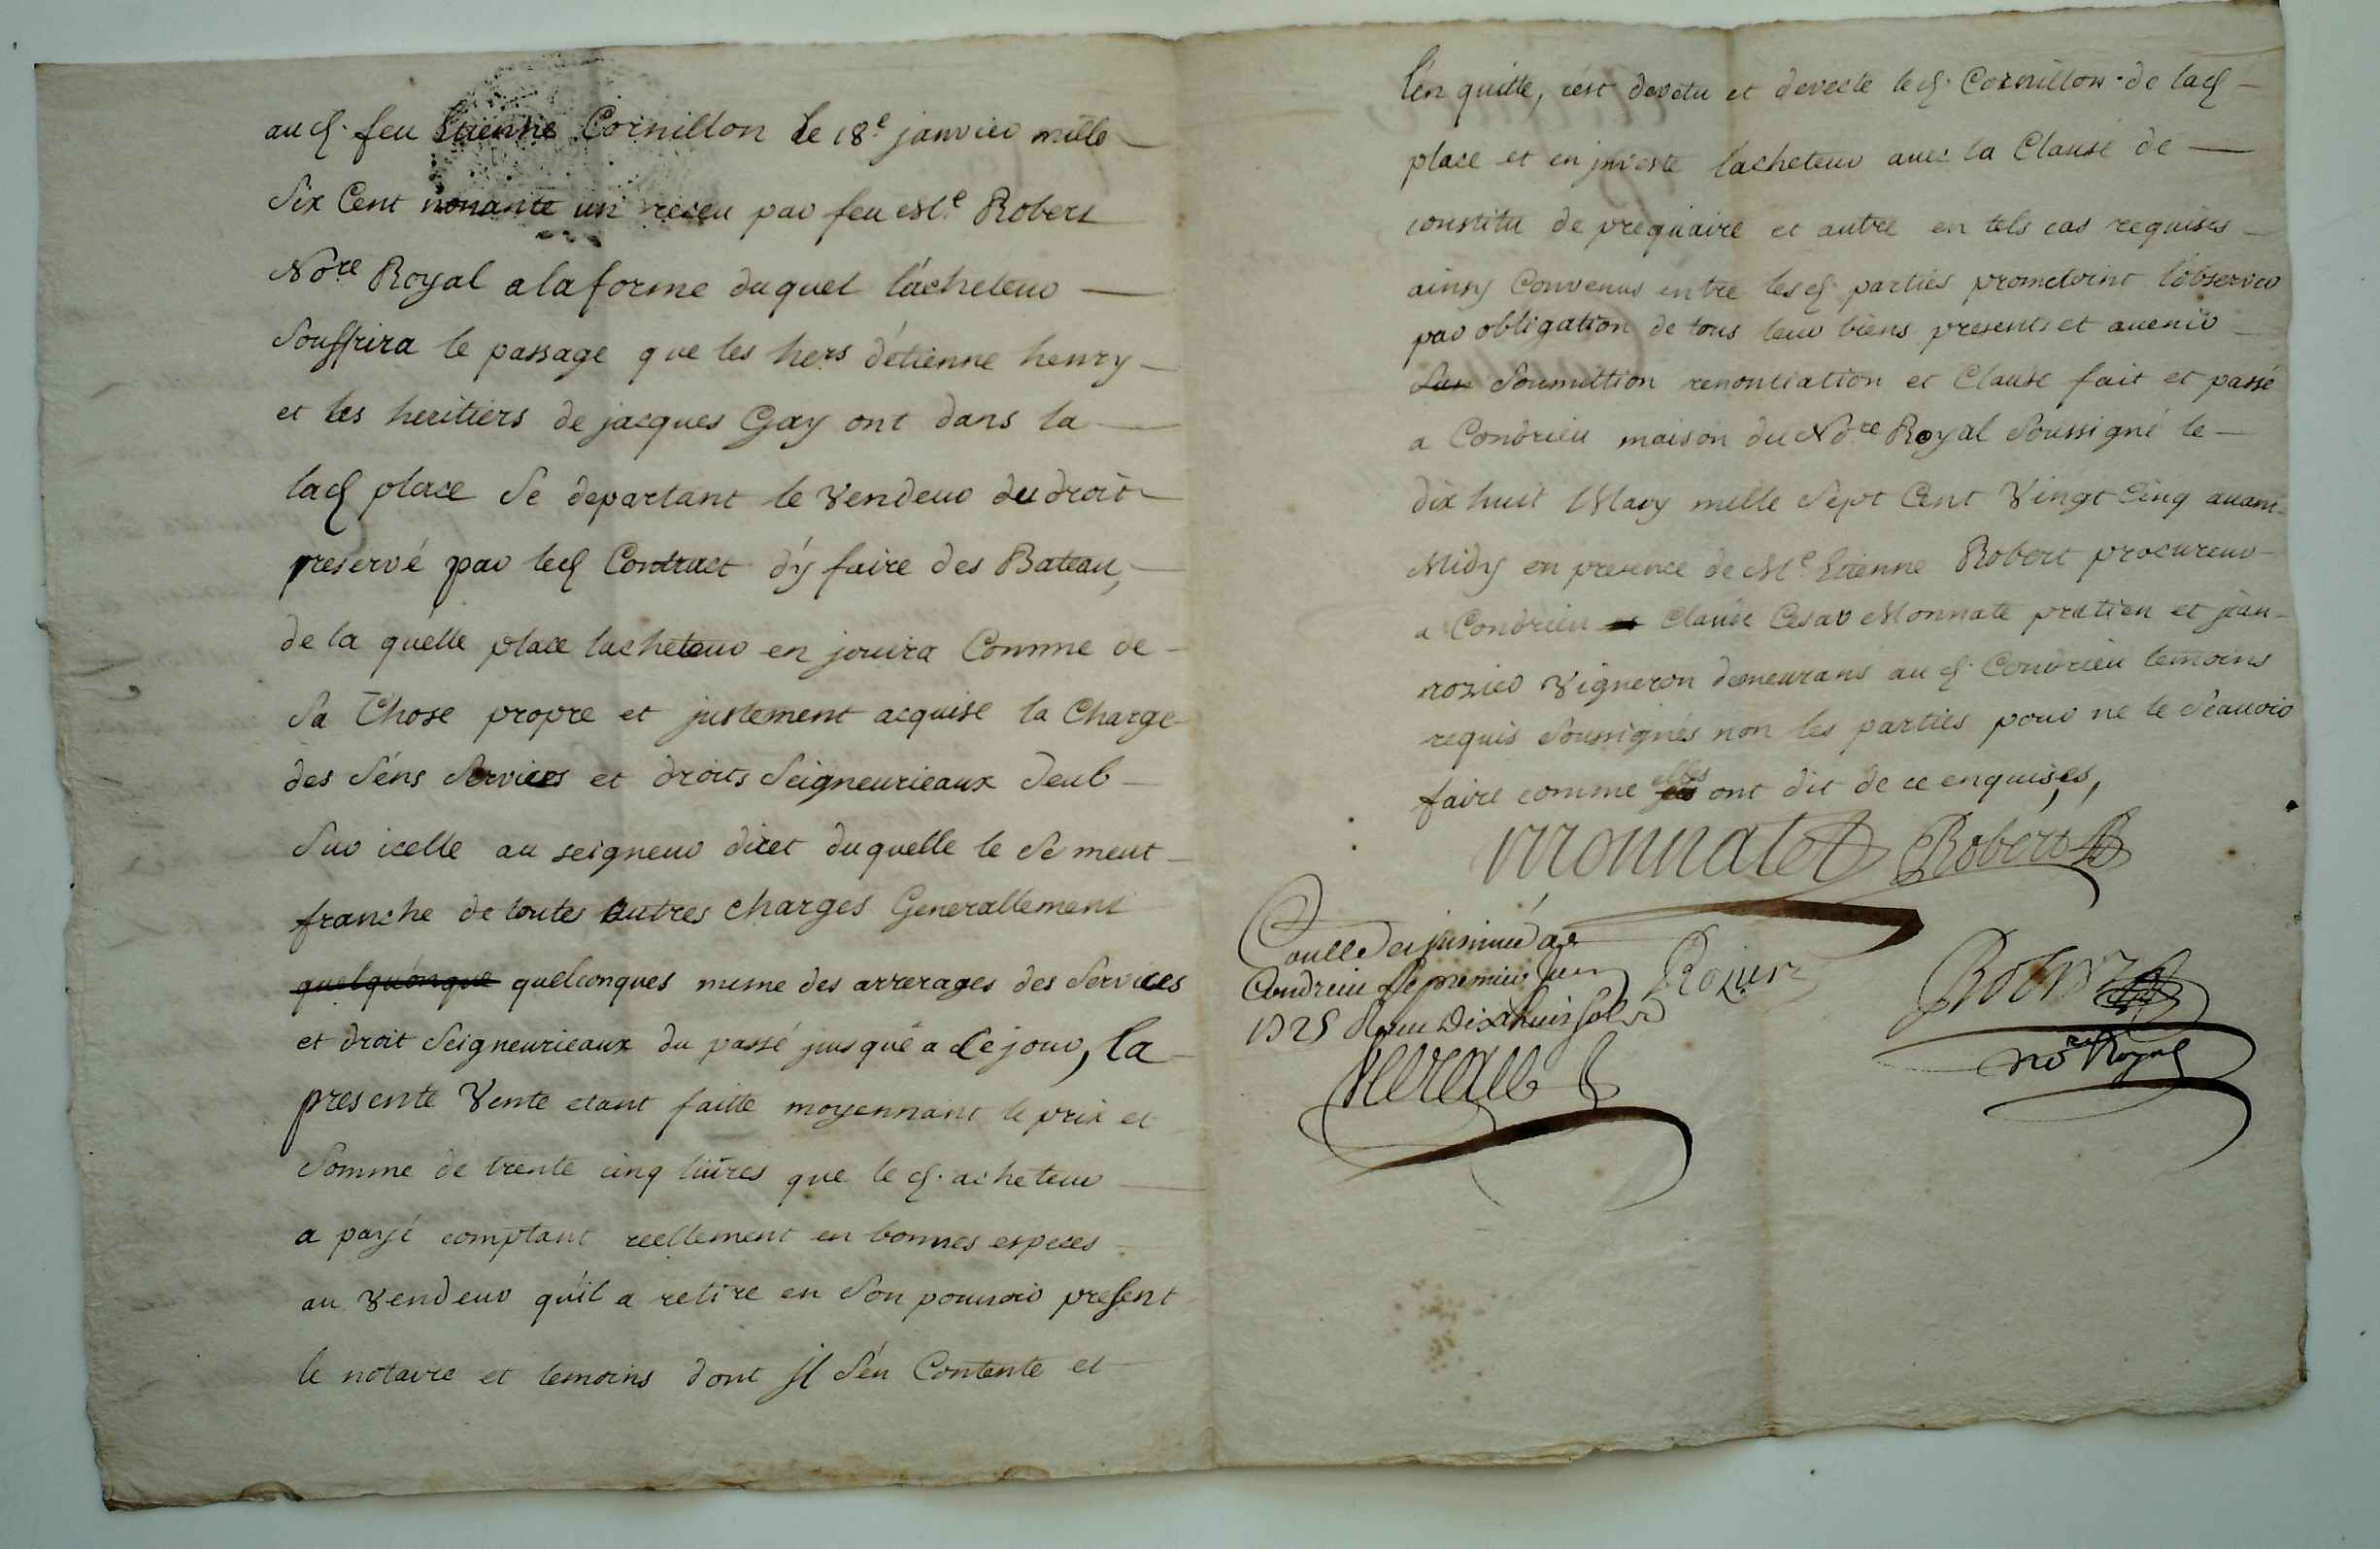 aud. feu Etienne Cornillon le 18e janvier mille
Six Cent nonante un receu par feu Me Robert
Nore Royal a la forme duquel l'acheteur
Souffrira le passage que les hers d'etienne henry
et les heritiers de jacques Gay ont dans la
lad place Se departant le Vendeur du droit
preservé par led Contract d'y faire des Bateau,
de la quelle place lacheteur en jouira Comme de
Sa Chose propre et justement acquise la Charge
des Séns Services et droits Seigneurieaux Deub
Sur icelle au seigneur direct duquelle le Se meut
franche de toutes autres charges Generallement
quelquonque quelconques meme des arrerages des Services
et droit Seigneurieaux du passé jusque a Ce jour, la
presente Vente etant faitte moyennant le prix et
Somme de trente cinq livres que le d. acheteur
a payé comptant reellement en bonnes especes
au Vendeur qu'il a retiré en Son pouvoir present
le notaire et temoins dont jl S'en Contente et
l'en quitte, s'est devetu et devecte led. Cornillon de lad
place et en jnveste lacheteur avec la Clause de
constitu de prequaire et autre en tels cas requises
ainsy Convenus entre lesd parties prometoint l'observer
par obligation de tous leur biens presents et avenir
Soumittion renontiation et Clause fait et passé
a Condrieu maison du Nore Royal Soussigné le
dix huit May mille Sept Cent Vingt Cinq avant
Midy en presence de Me Etienne Robert procureur
a Condrieu Claude Cesar Monnate pratien et jean
rozier Vigneron demeurans aud. Condrieu temoins
requis Soussignés non les parties pour ne le Scavoir
faire comme elles ont dit de ce enquises,
Monnatet Robert
Controllé et insinué a
Condrieu le premier juin
1725 Receu Dix huit sols
Rozier
Robert
nore Royal